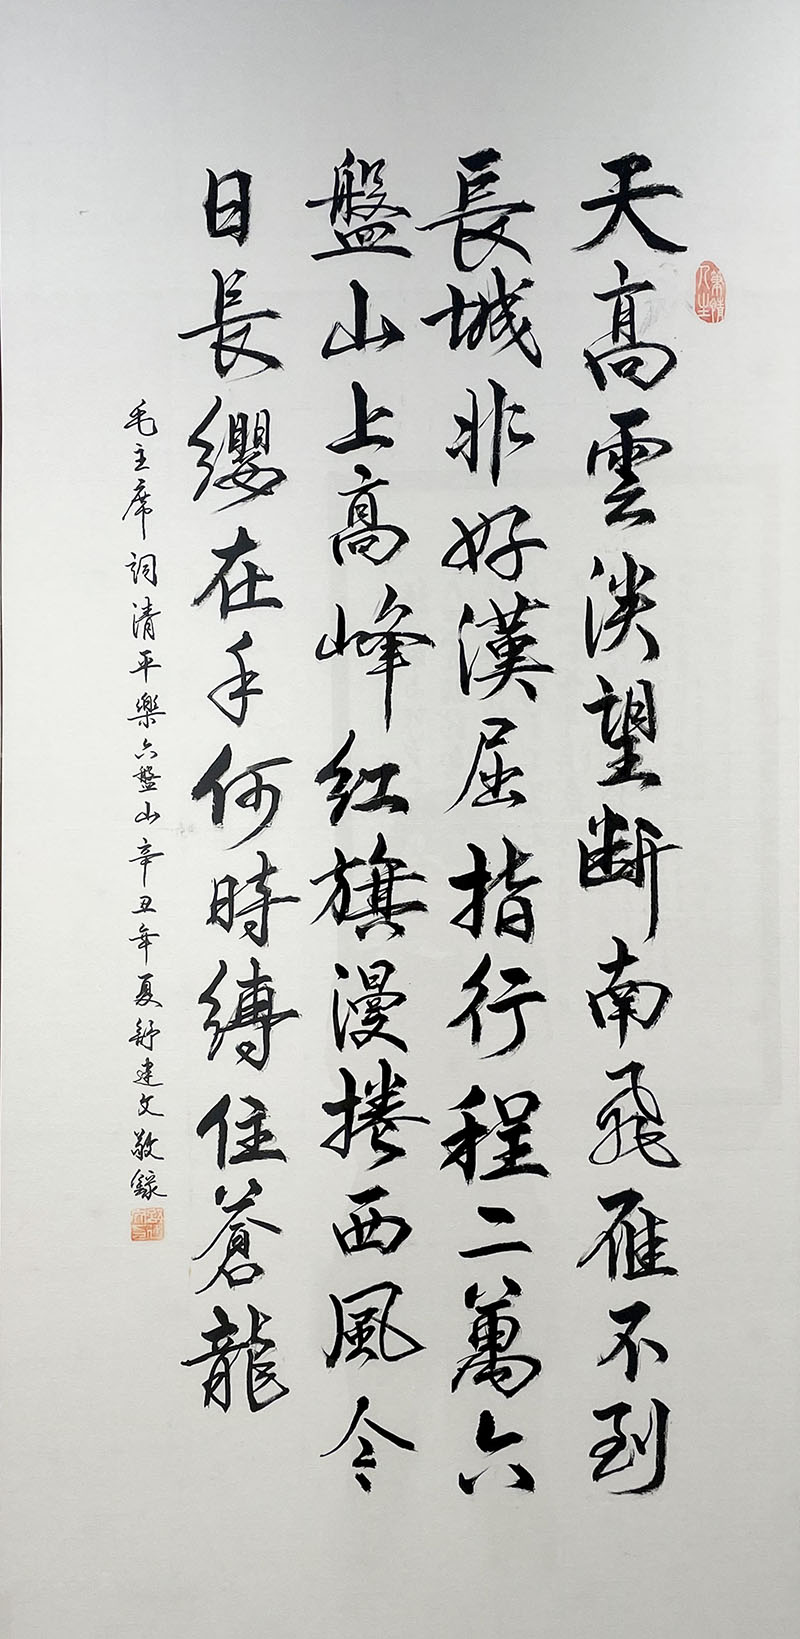 天高雲淡望斷南飛雁不到
長城非好漢屈指行程二萬六
盤山上高峰紅旗漫捲西風今
日長纓在手何時縛住蒼龍
毛主席詞清平樂六盤山辛丑年夏舒建文敬錄